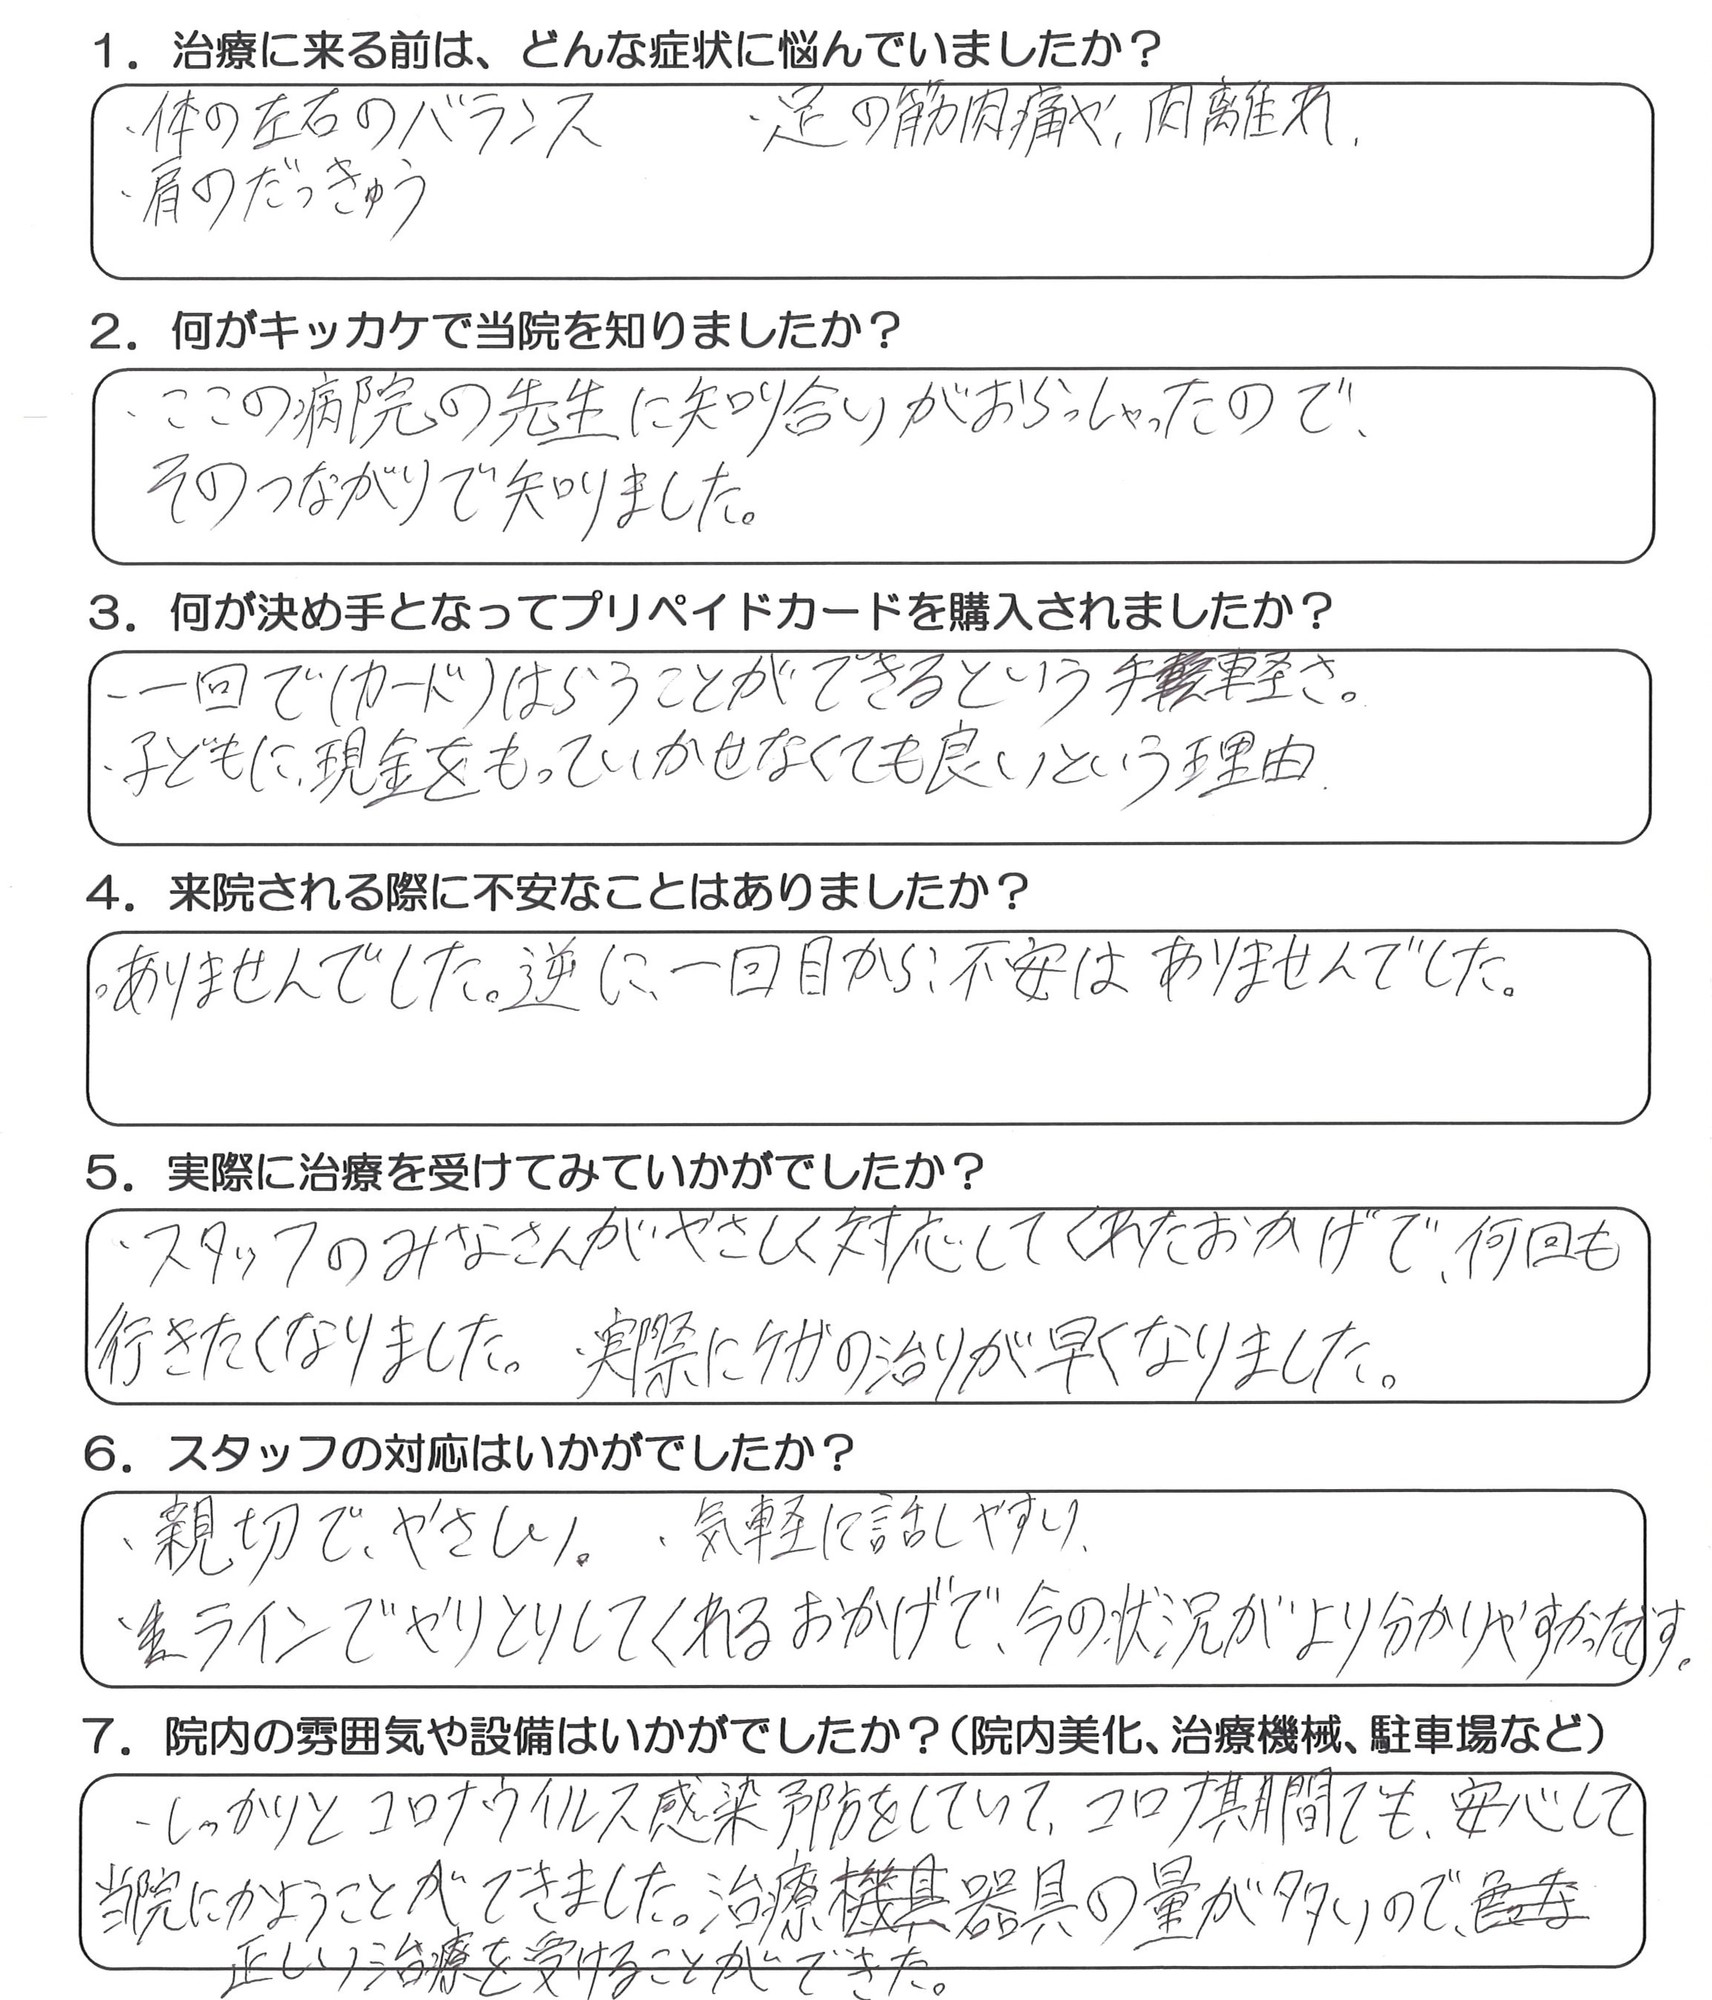 1. 治療に来る前は、どんな症状に悩んでいましたか？
・体の左右のバランス ・足の筋肉痛や、肉離れ、
・肩のだっきゅう
2. 何がキッカケで当院を知りましたか？
・ここの病院の先生に知り合いがおらっしゃったので、
そのつながりで知りました。
3. 何が決め手となってプリペイドカードを購入されましたか？
・一回で(カード)はらうことができるという手軽さ。
・子どもに、現金をもっていかせなくても良いという理由.
4. 来院される際に不安なことはありましたか？
・ありませんでした。逆に、一回目から、不安はありませんでした。
5. 実際に治療を受けてみていかがでしたか？
・スタッフのみなさんがやさしく対応してくれたおかげで、何回も
行きたくなりました。 ・実際にケガの治りが早くなりました。
6. スタッフの対応はいかがでしたか？
・親切で、やさしい。 ・気軽に話しやすい、
・ラインでやりとりしてくれるおかげで、今の状況がより分かりやすかったです。
7. 院内の雰囲気や設備はいかがでしたか？（院内美化、治療機械、駐車場など）
・しっかりとコロナウイルス感染予防をしていて、コロナ期間でも、安心して
当院にかようことができました。治療器具の量が多いので、
正しい治療を受けることができた。